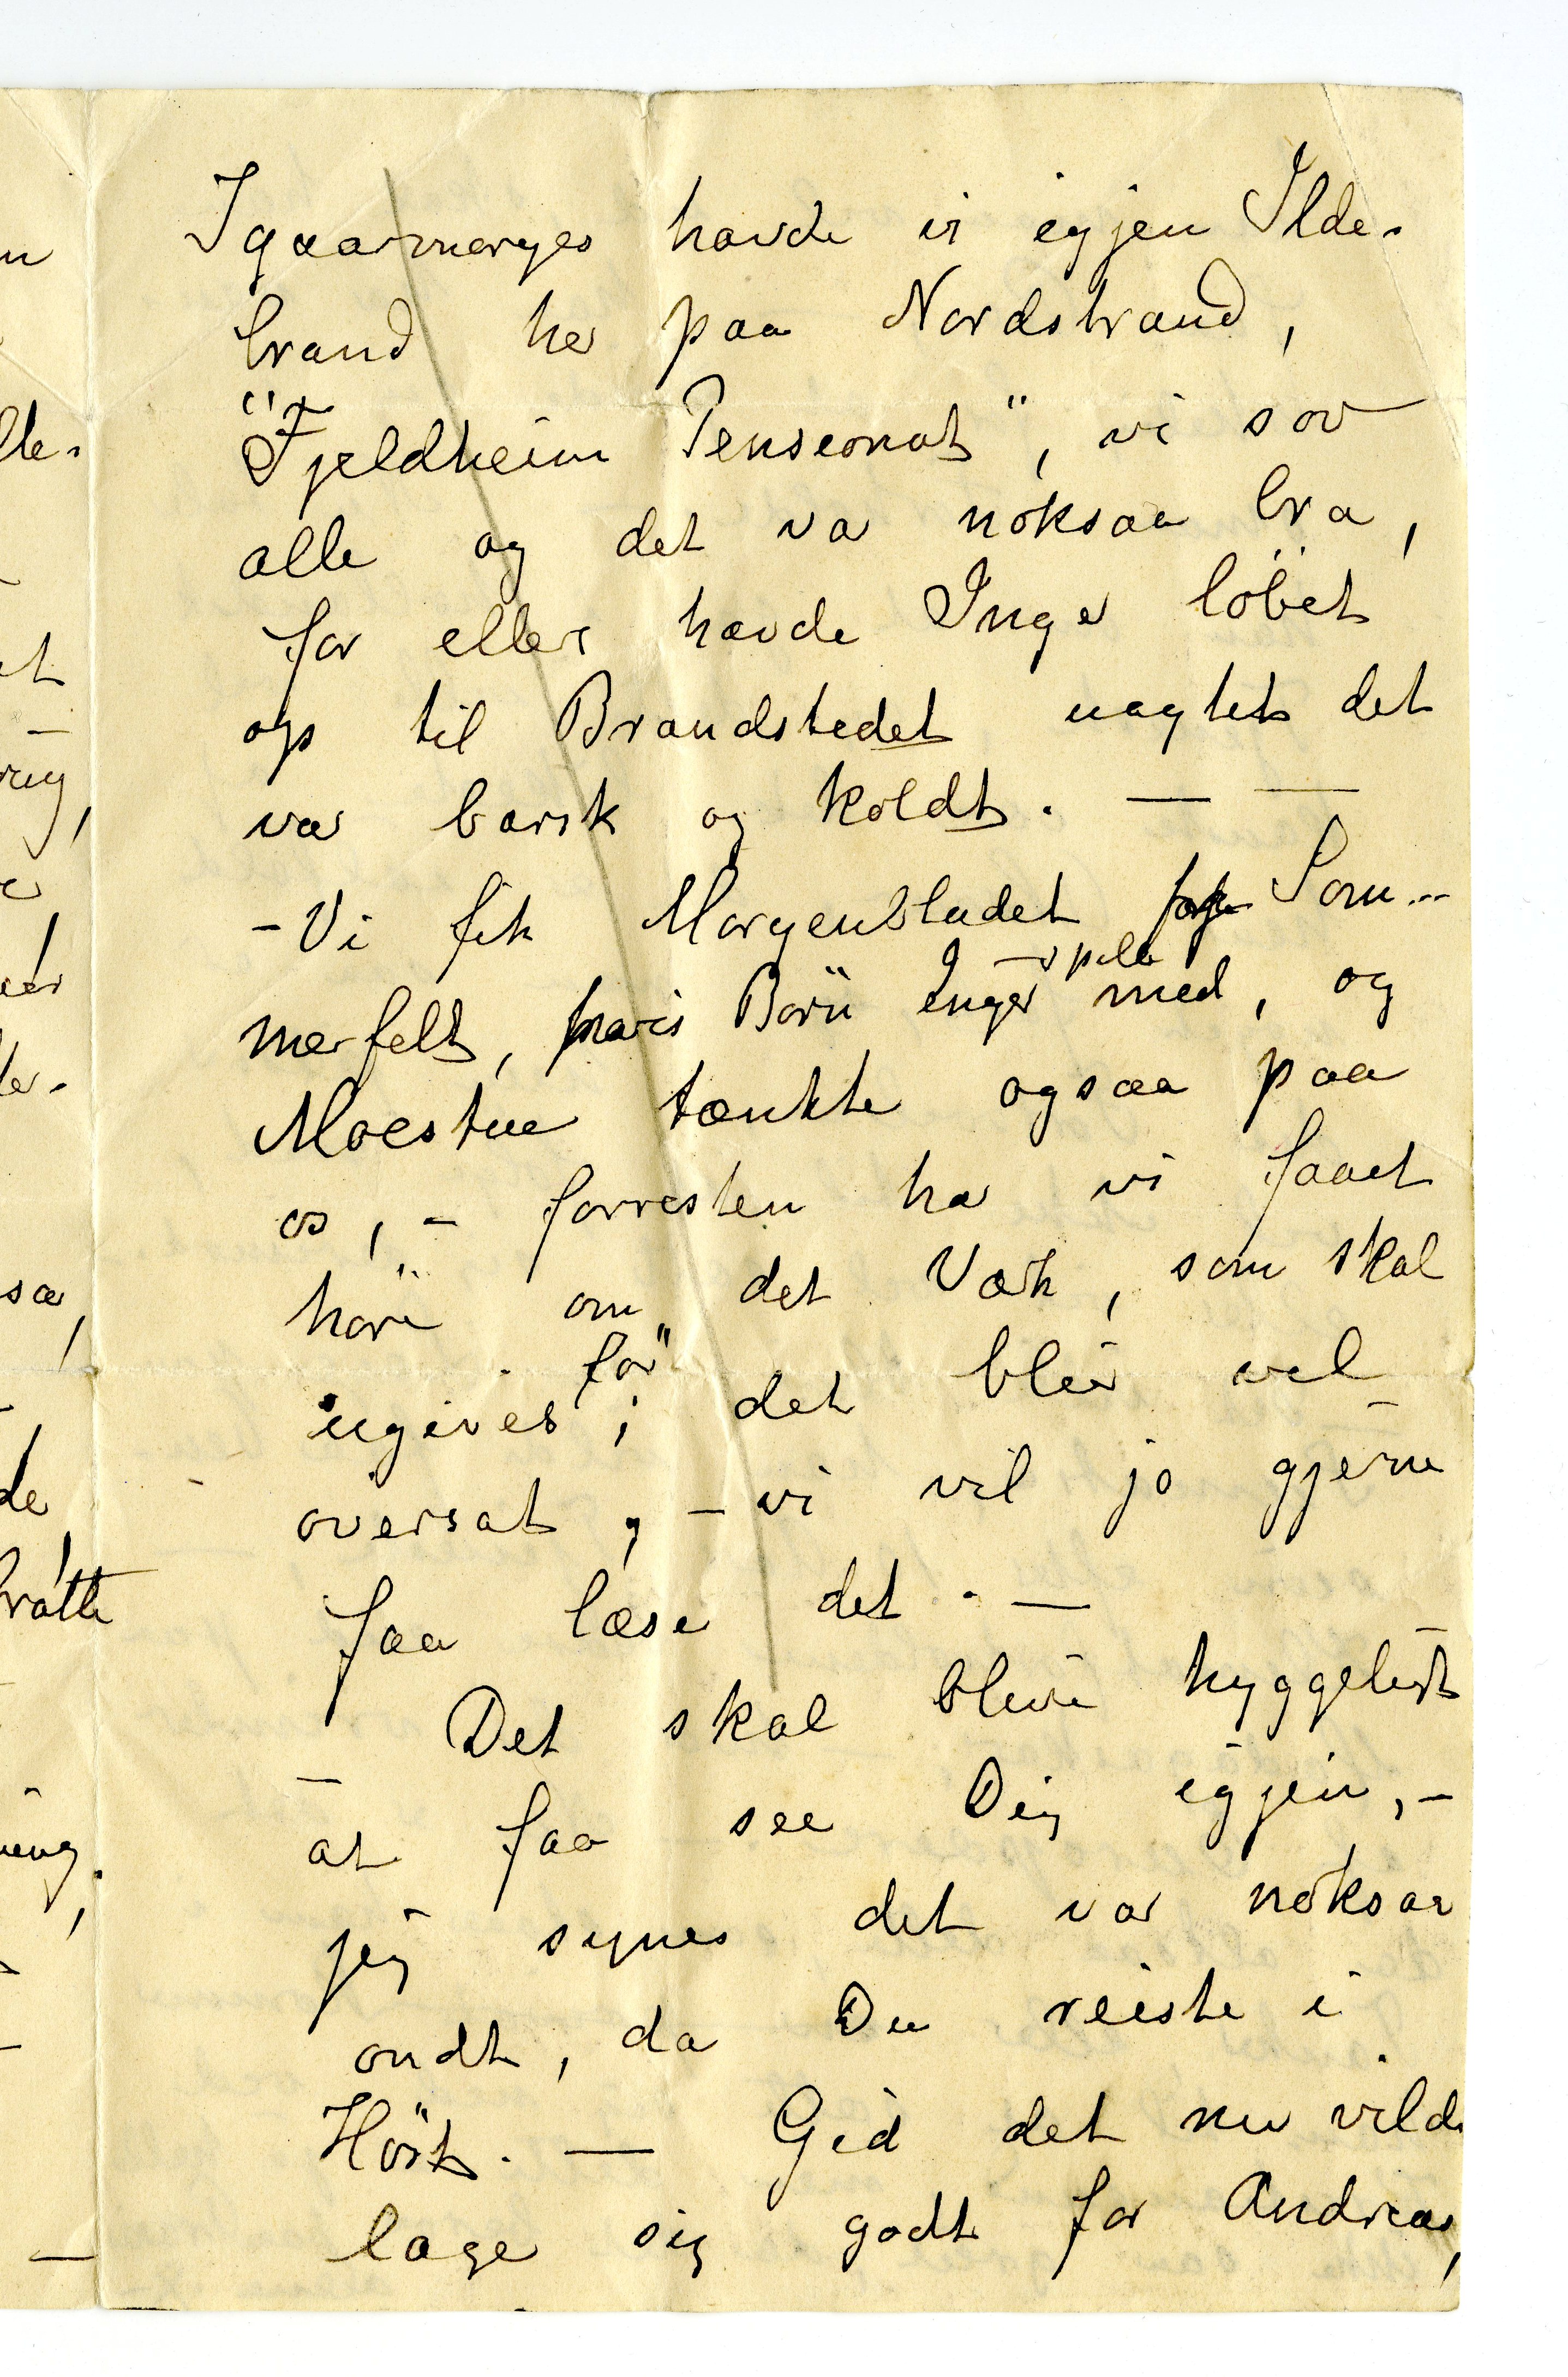 Igaarmorges havde vi igjen Ilde-
brand her paa Nordstrand,
"Fjeldheim Pensionat", vi sov
alle og det var noksaa bra,
for ellers havde Inger löbet
op til Brandstedet uagtet det
var barsk og koldt. — —
- Vi fik Morgenbladet Som-
merfelt, Börn Inger spiller med, og
Moestue tænkte ogsaa paa
os, - forresten har vi faaet
höre om det Værk, som skal
ugives för; det blir vel
oversat, - vi vil jo gjerne
faa læse det. —
Det skal blive hyggeligt
at faa see Dig igjen, -
jeg synes det var noksaa
ondt, da Du reiste i
Höst. — Gid det nu vilde
lage sig godt for Andreas,